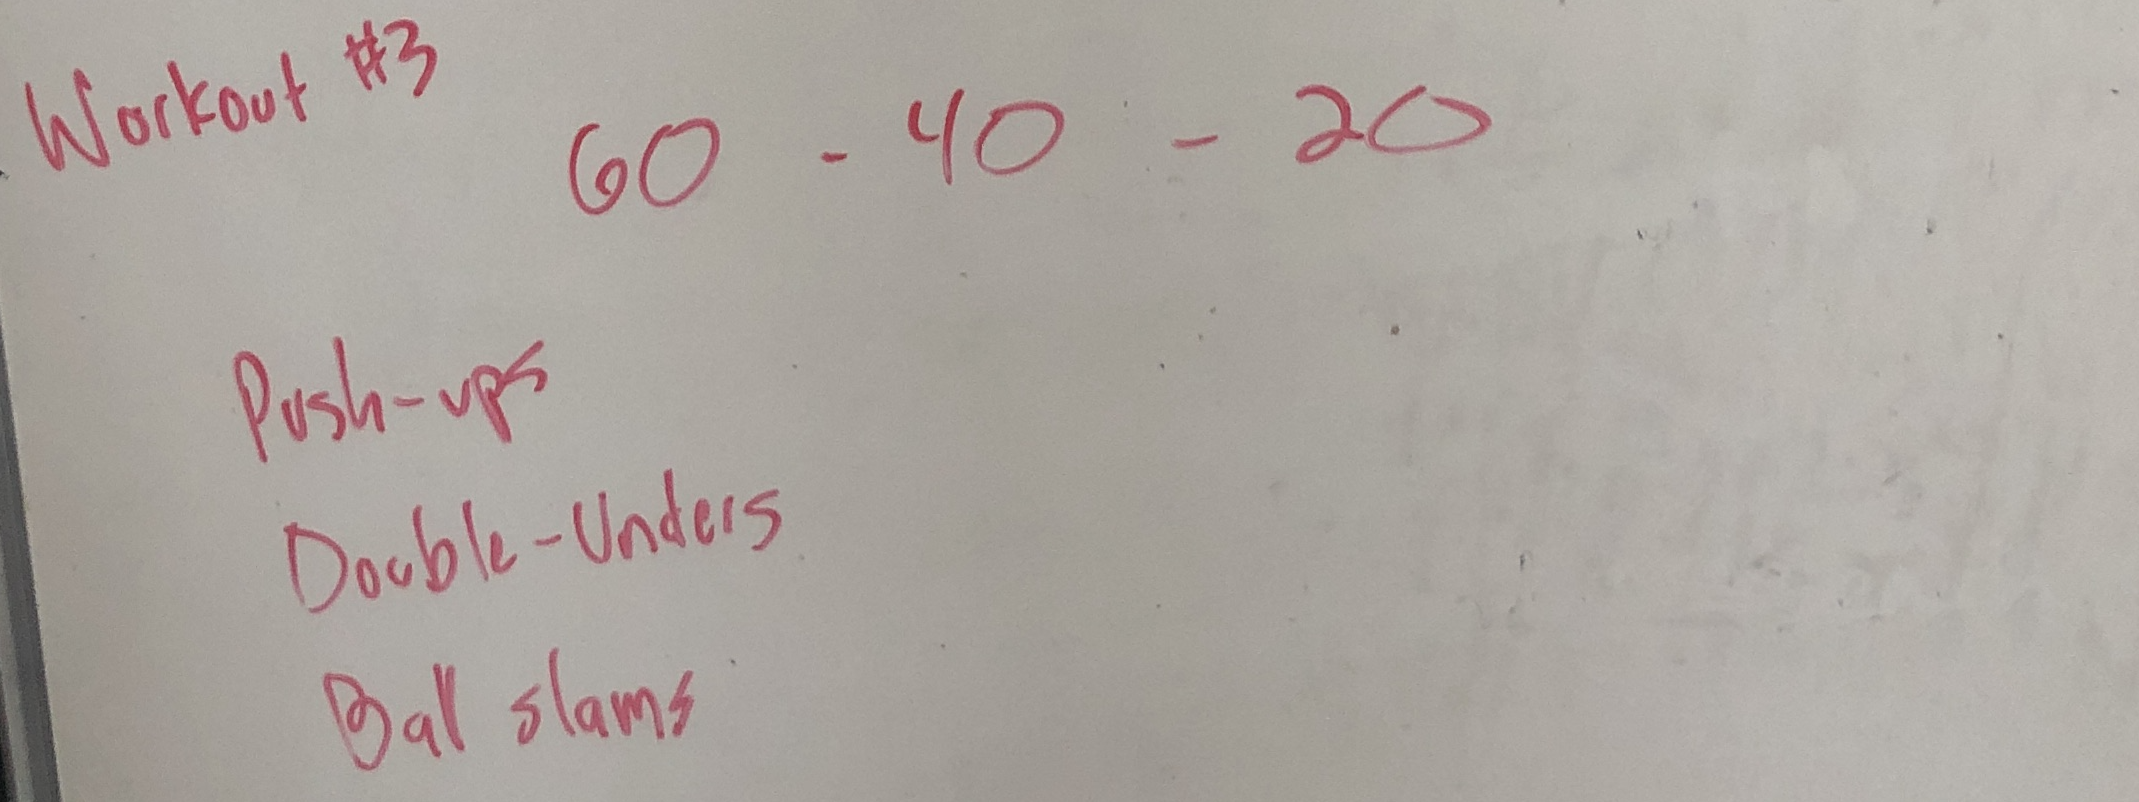 Workout #3
60 - 40 - 20
Push-ups
Double-Unders
Ball slams